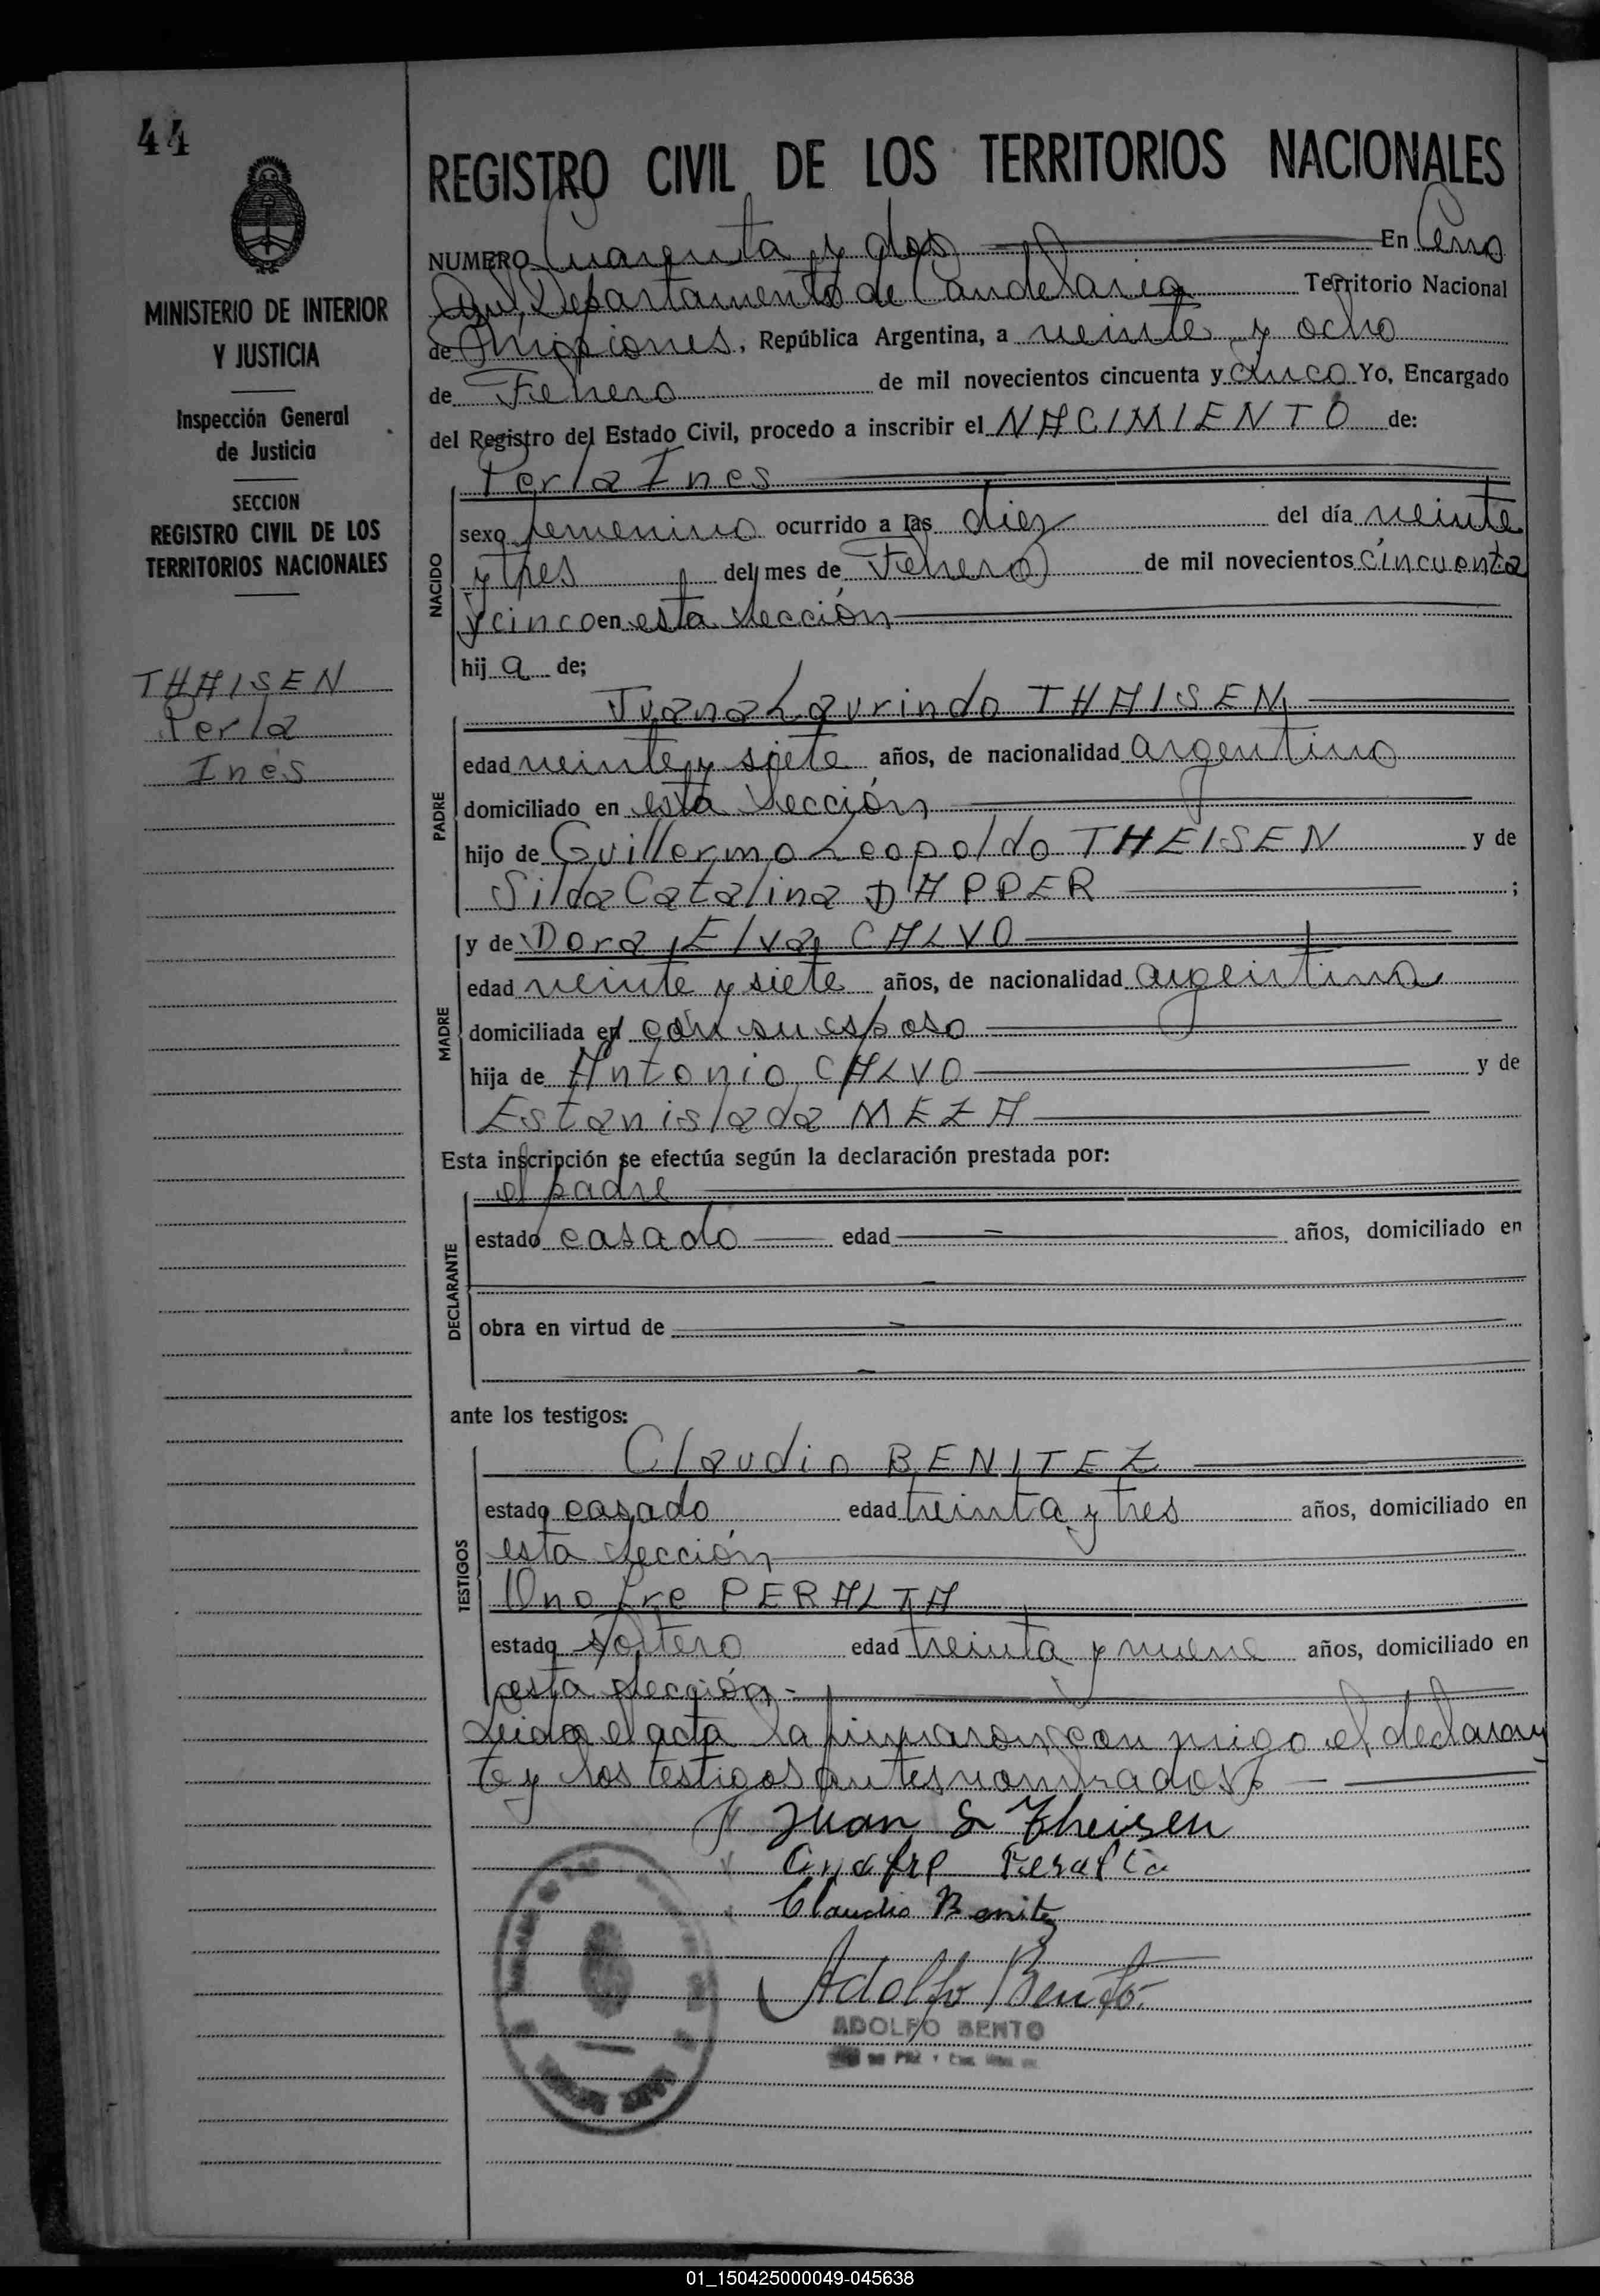 44
REGISTRO CIVIL DE LOS TERRITORIOS NACIONALES
MINISTERIO DE INTERIOR
Y JUSTICIA
Inspección General
de Justicia
SECCION
REGISTRO CIVIL DE LOS
TERRITORIOS NACIONALES
THAISEN
Perla
Inés
NUMERO Cuarenta y dos En Cerro
Departamento de Candelaria Territorio Nacional
de Misiones, República Argentina, a veinte y ocho
de Febrero de mil novecientos cincuenta y cinco Yo, Encargado
del Registro del Estado Civil, procedo a inscribir el NACIMIENTO de:
Perla Ines
NACIDO
sexo femenino ocurrido a las diez del día veinte
y tres del mes de Febrero de mil novecientos cincuenta
y cinco en esta sección
hij a de;
PADRE
Laurindo THAISEN
edad veinte y siete años, de nacionalidad argentino
domiciliado en esta sección
hijo de Guillermo Leopoldo THEISEN y de
Catalina DAPPER ;
MADRE
y de Dora Elva CALVO
edad veinte y siete años, de nacionalidad argentina
domiciliada en con su esposo
hija de Antonio CALVO y de
Estanislada MEZA
Esta inscripción se efectúa según la declaración prestada por:
DECLARANTE
el padre
estado casado edad años, domiciliado en
obra en virtud de
ante los testigos:
TESTIGOS
Claudio BENITEZ
estado casado edad treinta y tres años, domiciliado en
esta sección
Onofre PERALTA
estado soltero edad treinta y nueve años, domiciliado en
esta sección.-
Leida el acta la firmaron con migo el declaran
te y los testigos antes nombrados
Juan L Theisen
Onofre Peralta
Claudio Benitez
Adolfo Bento
ADOLFO BENTO
01_150425000049-045638